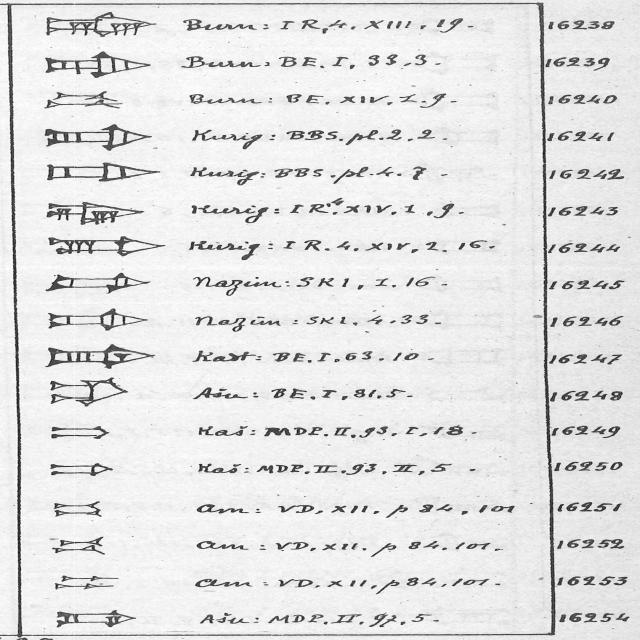 Burn: I R, 4. XIII. 19. 16238
Burn: BE. I, 33, 3. 16239
Burn: BE. XIV. 1. 9. 16240
Kurig: BBS. pl. 2. 2. 16241
Kurig: BBS. pl. 4. 7. 16242
Kurig: I R. 4. XIV, 1, 9. 16243
Kurig: I R. 4. XIV, 2. 16. 16244
Nazim: SK 1, I. 16. 16245
Nazim: SK 1. 4. 33. 16246
Kast: BE. I. 63. 10. 16247
Ašu: BE. I, 81. 5. 16248
Kaš: MDP. II. 93. I, 18. 16249
Kaš: MDP. II. 93. II, 5. 16250
Am: VD. XII. p 84, 101 16251
Am: VD. XII. p 84. 101. 16252
Am: VD. XII, p 84. 101. 16253
Ašu: MDP. II. 97, 5. 16254